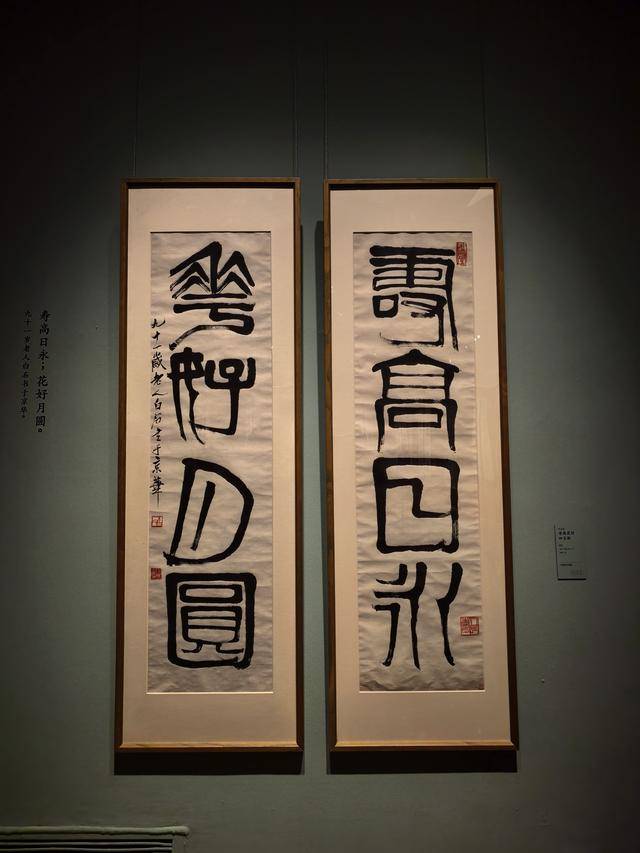 壽高日永
花好月圓
九十一歲老人白石書于京華
寿高日永；花好月圆。
九十一岁老人白石书于京华。